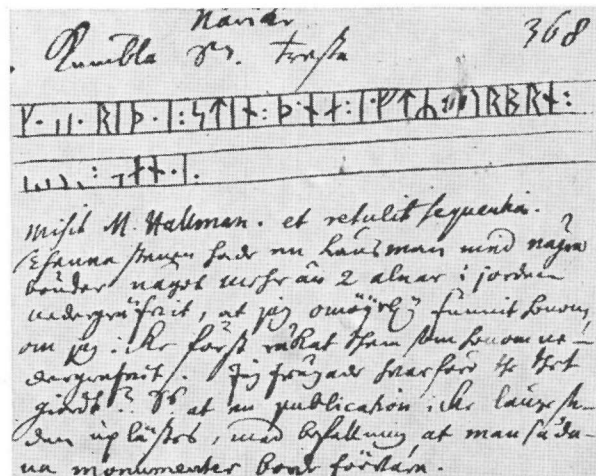 368
Kumbla Tresta
ᚱᛁᚦ·ᛁ:ᛋᛏᛁᚾ:ᚦ·
misit M. Hallman. et retulit sequentia.
Thenna stenen hade en länsman med någre
bönder något mehr än 2 alnar i jorden
nedergräfvit, at jag funnit honom,
om jag icke först råkat them som honom ne-
dergrafvit. Jag frågade hvarföre the thet
giordt? at en publication icke länge se-
dan uplästes, med befallning at man såda-
na monumenter borde förstöra.